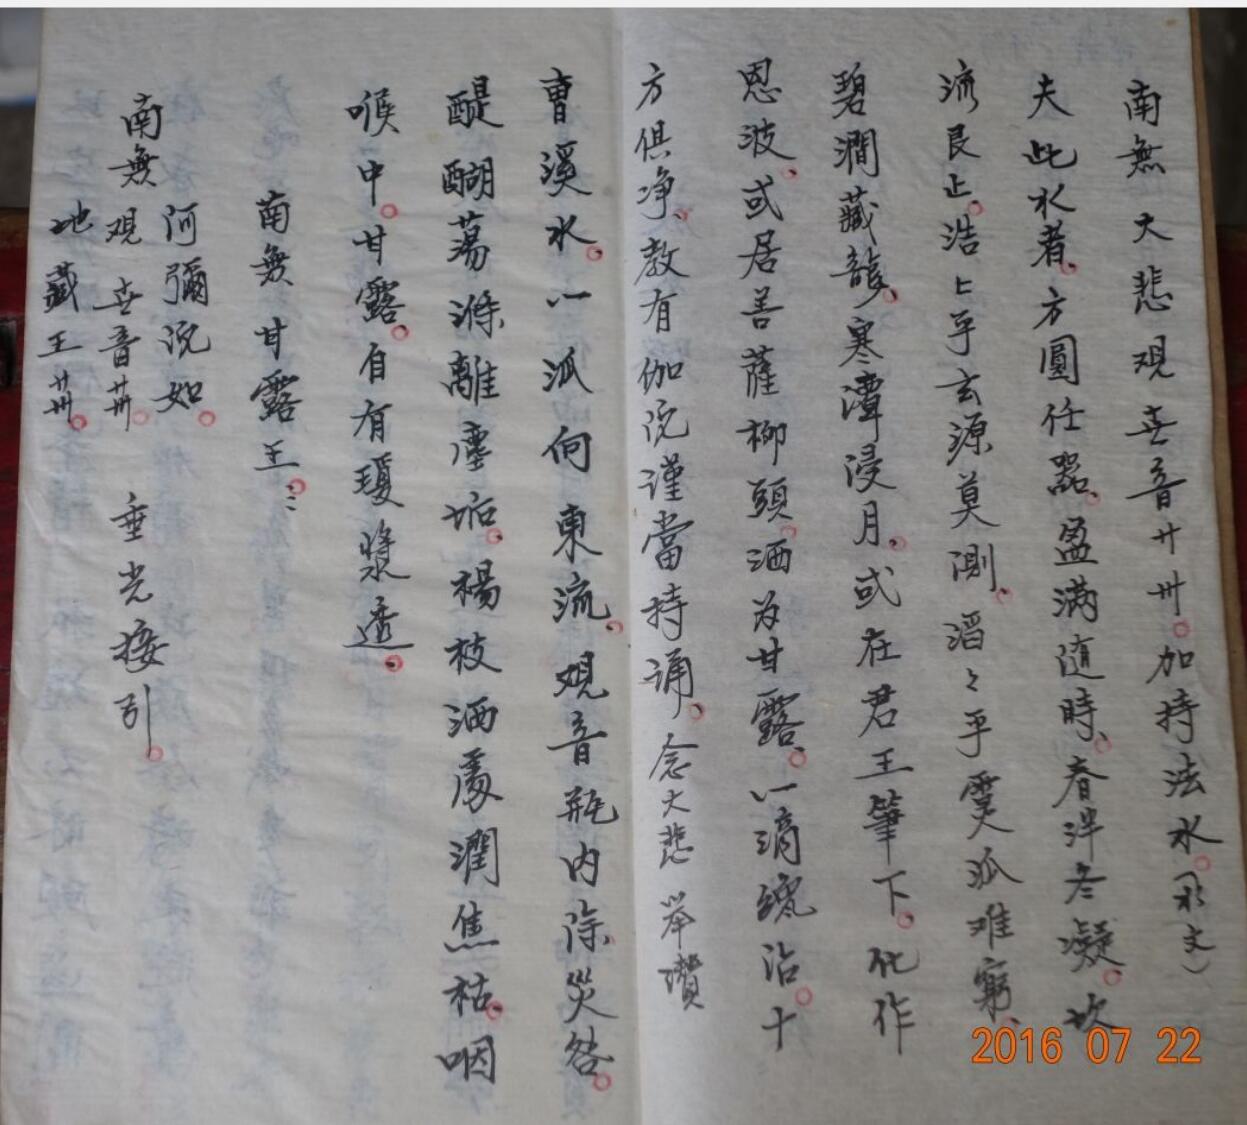 南無大悲观音卄卌。加持法水。水文)
夫此水者。方圓任器。盈满随時。春泮冬凝。坎
流艮止。浩〻乎玄源莫測。滔〻乎灵派难窮。
碧澗藏龍。寒潭浸月。或在君王筆下。化作
恩波。或居菩薩柳頭。洒为甘露。一滴纔沾。十
方俱净。教有伽陀謹當持诵。念大悲 举讚
曹溪水。一派向東流。观音瓶内除災咎。
醍醐荡滌離塵垢。楊枝洒處潤焦枯。咽
喉中。甘露。自有瓊漿透。
南無甘露王〻
阿彌陀如。
南無观音卌。垂光接引。
地藏王卌。
2016 07 22